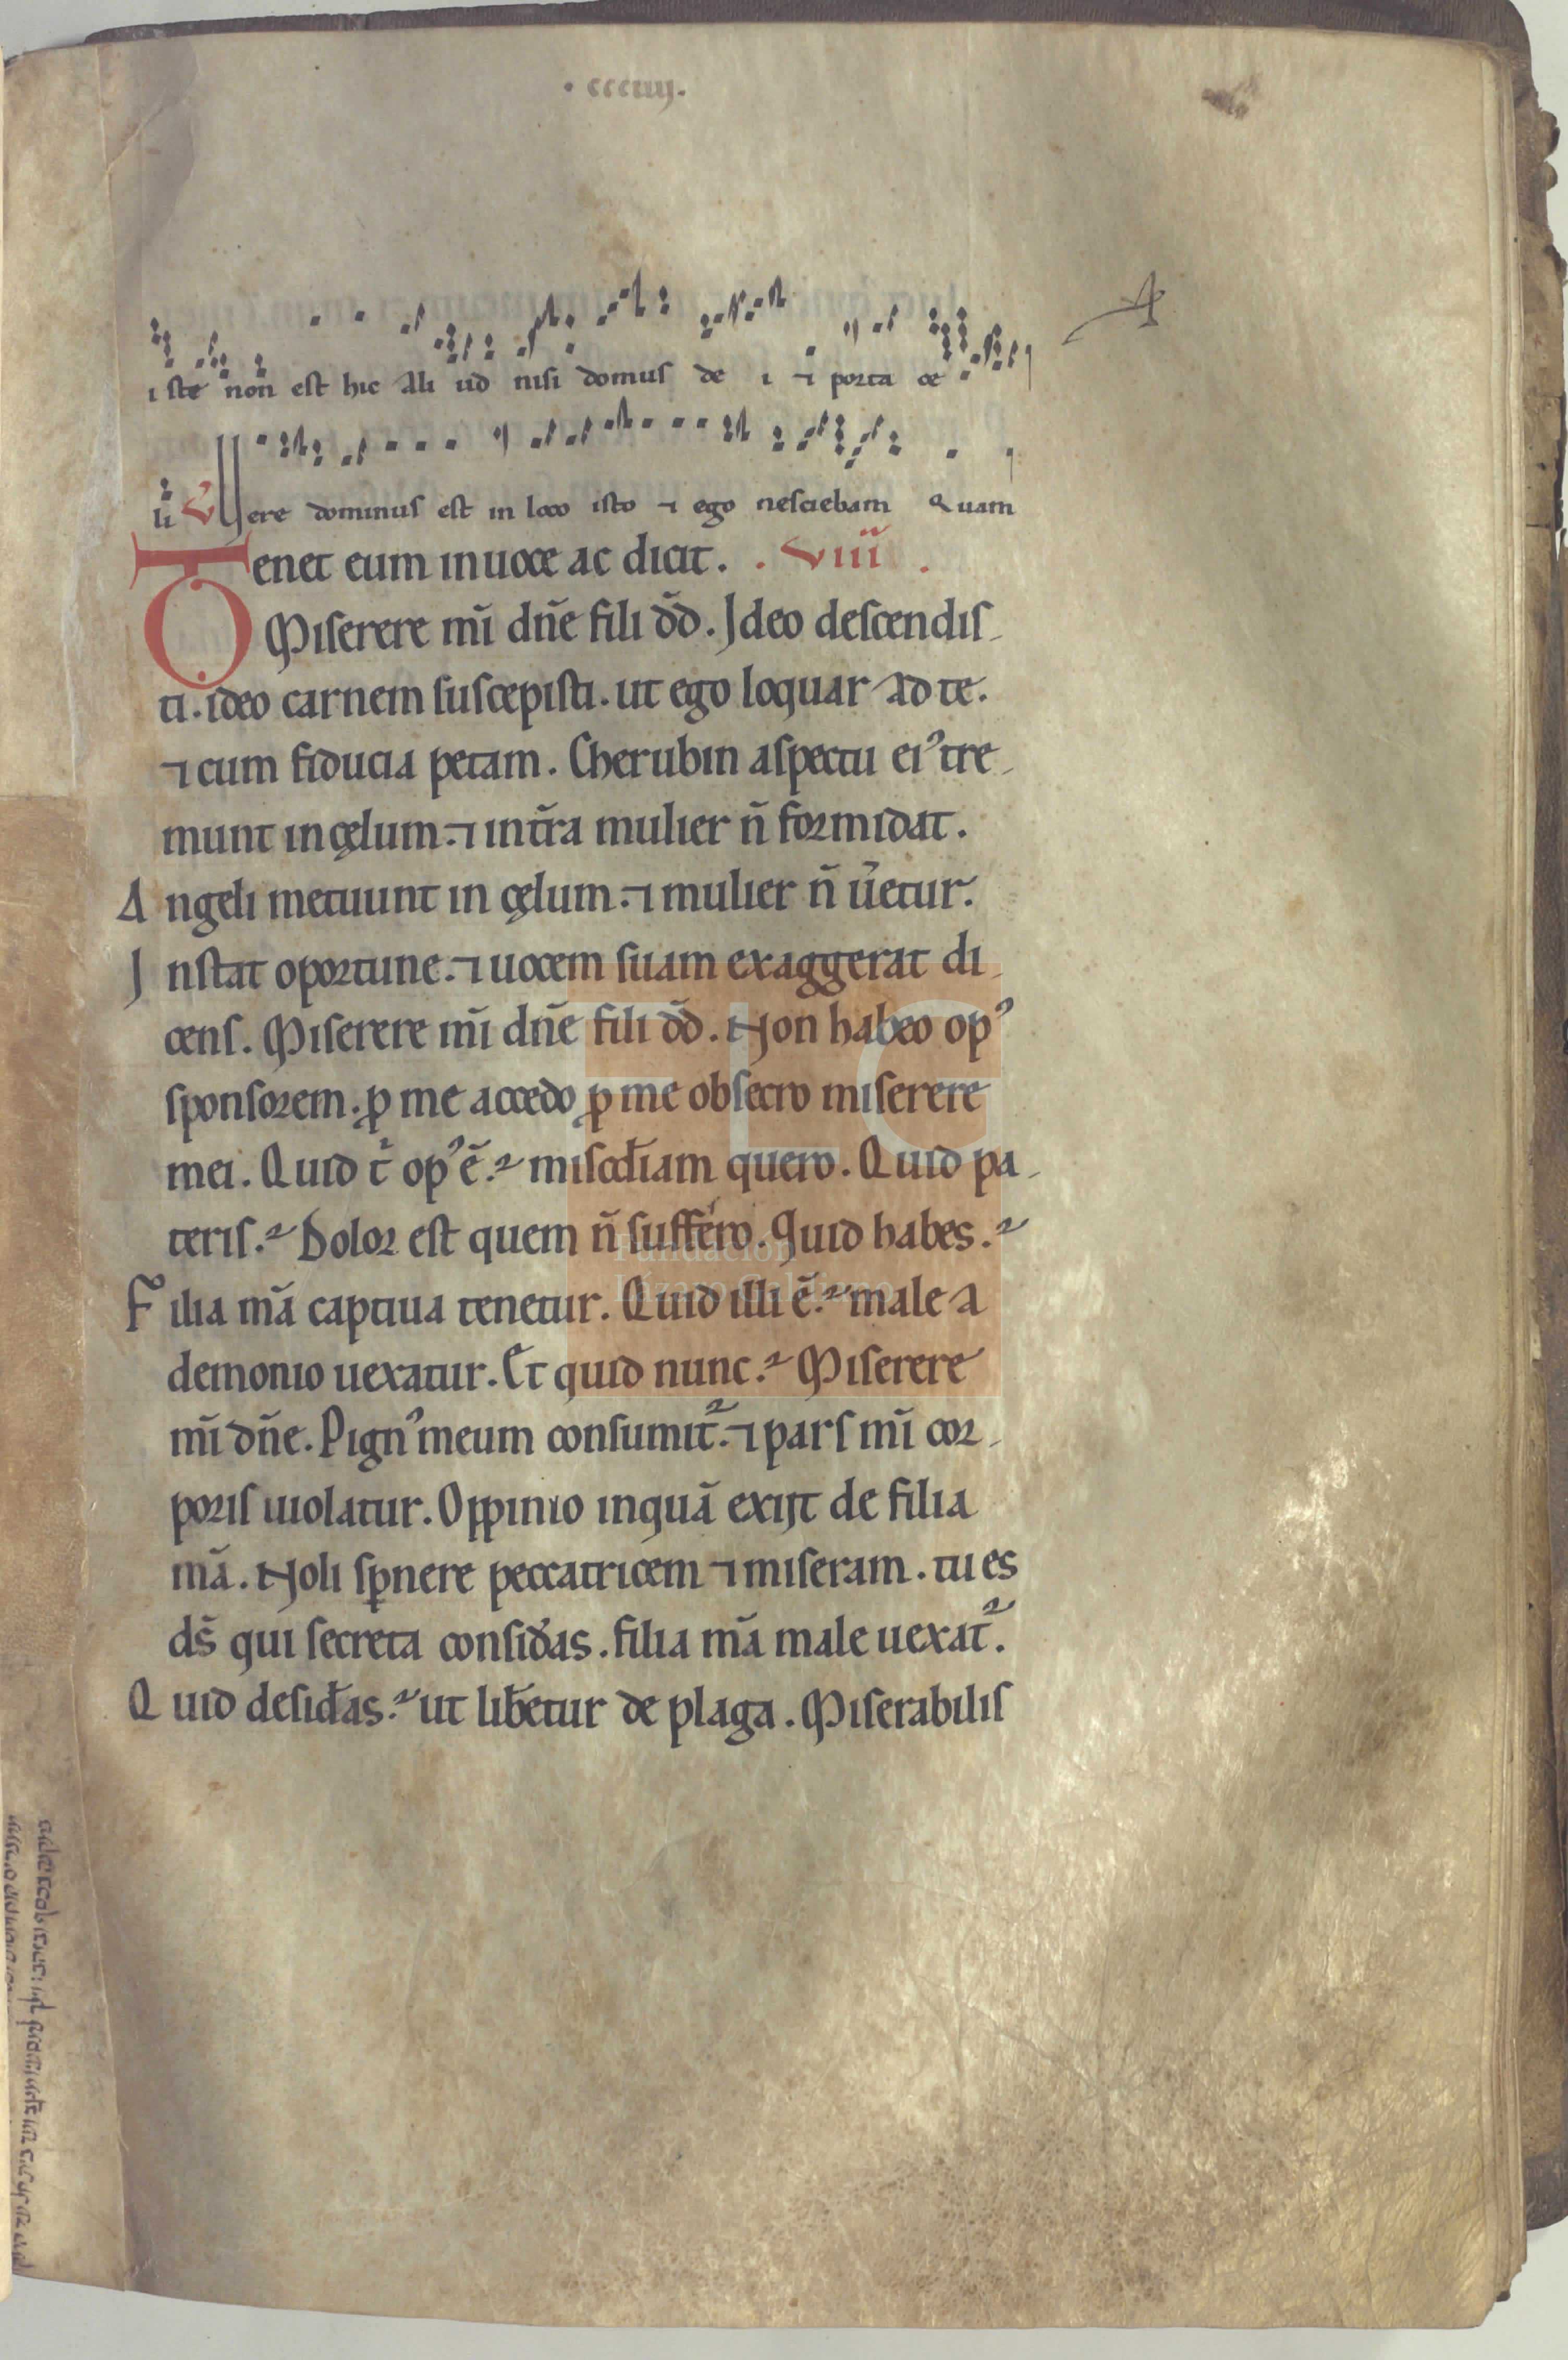 · cccciiij.
iste non est hic Aliud nisi domus dei ⁊ porta ce
li V Vere dominus est in loco isto ⁊ ego nesciebam Quam
Tenet eum in uoce ac dicit. . VIII .
Miserere m̄i dn̄e fili dd̄. Ideo descendis-
ti. ideo carnem suscepisti. ut ego loquar ad te.
⁊ cum fiducia petam. Cherubin aspectu ei᾽ tre-
munt in çelum. ⁊ in tr̄a mulier n̄ formidat.
Angeli metuunt in çelum. ⁊ mulier n̄ ūetur.
Instat oportune. ⁊ uocem suam exaggerat di-
cens. Miserere m̄i dn̄e fili dd̄. Non habeo op᾽
sponsorem. ꝓ me accedo ꝓ me obsecro miserere
mei. Quid t̄ op᾽ ē.? misc̄diam quero. Quid pa-
teris.? Dolor est quem n̄ suffero. Quid habes.?
Filia m̄a captiua tenetur. Quid illi ē.? male a
demonio uexatur. Et quid nunc.? Miserere
m̄i dn̄e. Pign᾽ meum consumit᷑. ⁊ pars m̄i cor-
poris uiolatur. Oppinio inquā exijt de filia
m̄a. Noli sp̄nere peccatricem ⁊ miseram. tu es
ds̄ qui secreta consid̄as. filia m̄a male uexat᷑.
Quid desid̄as.? ut lib̄etur de plaga. Miserabilis
FLG
Fundación
Lázaro Galdiano